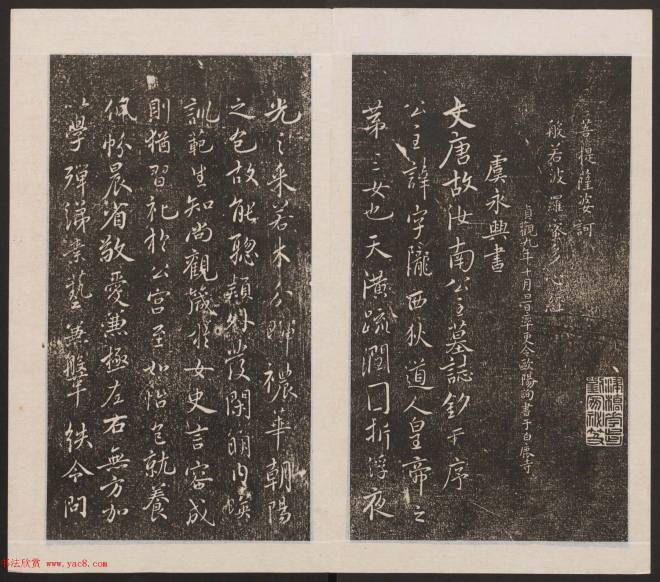 菩提薩婆訶
般若波羅蜜多心經
貞觀九年十月旦日率更令歐陽詢書于白鹿寺
虞永興書
大唐故汝南公主墓誌銘并序
公主諱字隴西狄道人皇帝之
第三女也天潢疏潤圓折浮夜
光之采若木分暉穠華朝陽
之色故能聰穎外發閑明內暎
訓範生知尚觀箴於女史言容成
則猶習礼於公宮至如怡色就養
佩帉晨省敬愛兼極左右無方加
以學殫綈素藝兼鞶紩令問
书法欣赏 www.yac8.com